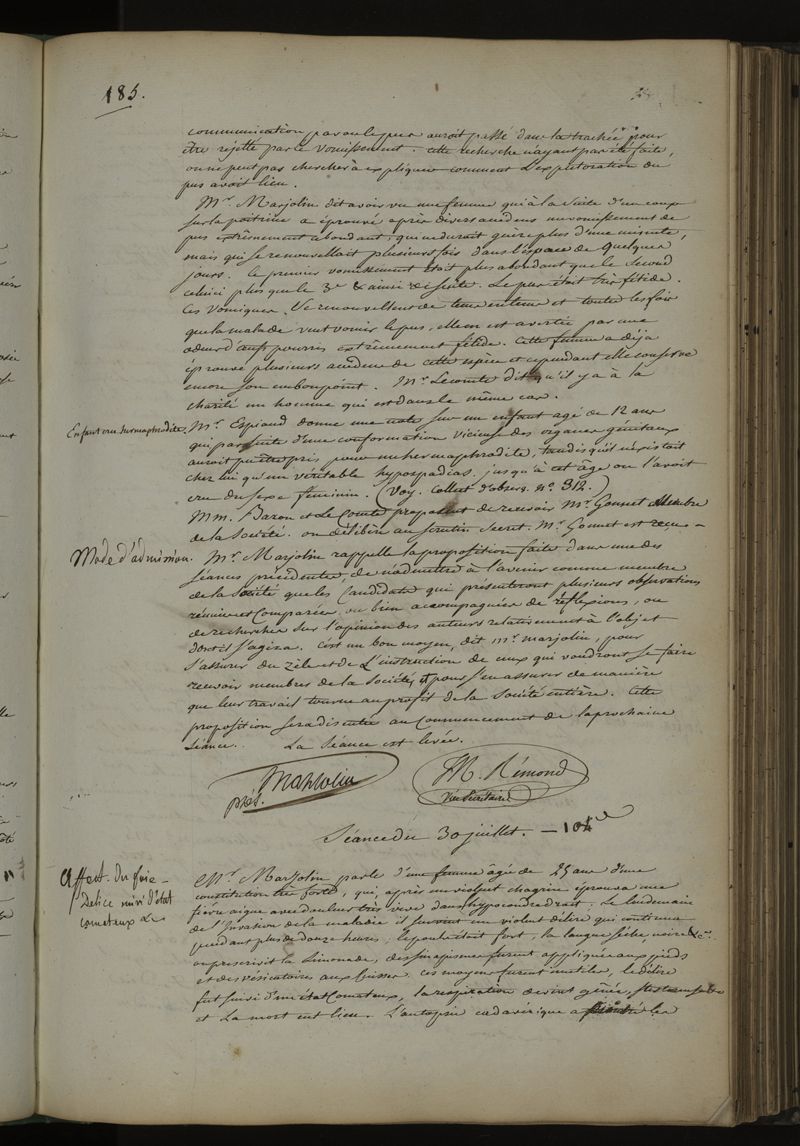 185.
communication par ou le pus auroit passé dans la trachée pour
être rejetté par le vomissement. Cette recherche n'ayant pas été faite,
on ne peut pas chercher à expliquer comment l'expectoration du
pus avoit lieu.
Mr. Marjolin dit avoir vu une femme qui à la suite d'un coup
sur la poitrine a éprouvé après divers accidens un vomissement de
pus extrêmement abondant, qui ne durait guère plus d'une minute,
mais qui se renouvellait plusieurs fois dans l'espace de quelques
jours. Le premier vomissement était plus abondant que le second
celui ci plus que le 3e & ainsi de suite. Le pus était très fétide.
Ces vomiques se renouvellent de tems en tems et toutes les fois
que la malade veut vomir le pus, elle en est avertie par une
odeur d'œufs pourris extrêmement fétide. Cette femme a déja
éprouvé plusieurs accidens de cette espèce et cependant elle conserve
encore son embonpoint. Mr. Lecomte dit qu'il y a à la
charité un homme qui est dans le même cas.
Enfant cru hermaphrodite.
Mr. Espiaud donne une note sur un enfant agé de 12 ans
qui par suite d'une conformation vicieuse des organes génitaux
auroit pu être pris pour un hermaphrodite, tandis qu'il n'existait
chez lui qu'un véritable hypospadias. jusqu'à cet âge on l'avoit
cru du sexe feminin. (Voy. Collect. d'observ. no. 312.)
MM. Baron et Le Comte proposent de recevoir Mr. Gonnet Membre
de la Société. on délibère au scrutin secret. Mr. Gonnet est reçu.
Mode d'admission.
Mr. Marjolin rappelle la proposition faite dans une des
séances précédentes, de n'admettre à l'avenir comme membre
de la Société que les Candidats qui présenteront plusieurs observations
réunies et comparées ou bien accompagnées de réflexions, ou
de recherches sur l'opinion des auteurs relativement à l'objet
dont il s'agira. C'est un bon moyen, dit Mr. Marjolin, pour
s'assurer du zèle et de l'instruction de ceux qui voudront se faire
recevoir membres de la Société, et pour s'en assurer de manière
que leur travail tourne au profit de la Société entière. Cette
proposition sera discutée au commencement de la prochaine
séance. La Séance est levée.
Marjolin
prés.
M. Rémond
Vice Secrétaire
Séance du 30 juillet. — 104e
Affect. du foie -
Délire suivi d'état
comateux &c
Mr. Marjolin parle d'une femme âgée de 25 ans d'une
constitution très forte, qui, après un violent chagrin éprouva une
fièvre aigue avec douleur très vive dans l'hypocondre droit. Le lendemain
de l'invasion de la maladie il survint un violent délire qui continua
pendant plus de douze heures; le pouls était fort, la langue sèche, noire &c.
on prescrivit la limonade, des sinapismes furent appliqués aux pieds
et des vésicatoires aux cuisses. ces moyens furent inutiles, le délire
fut suivi d'un état comateux, la respiration devint gênée,
et la mort eut lieu. L'autopsie cadavérique a les